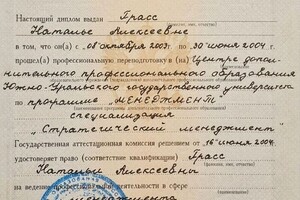 Настоящий диплом выдан Прасс
Наталье Алексеевне
в том, что он(а) с 08 октября 2003 г. по 30 июня 2004 г.
прошел(а) профессиональную переподготовку в (на) Центре допол-
нительного профессионального образования
Южно-Уральского государственного университета
по программе "МЕНЕДЖМЕНТ"
специализация
"Стратегический менеджмент"
Государственная аттестационная комиссия решением от 16 июня 2004
удостоверяет право (соответствие квалификации) Прасс
Натальи Алексеевны
на ведение профессиональной деятельности в сфере
менеджмента